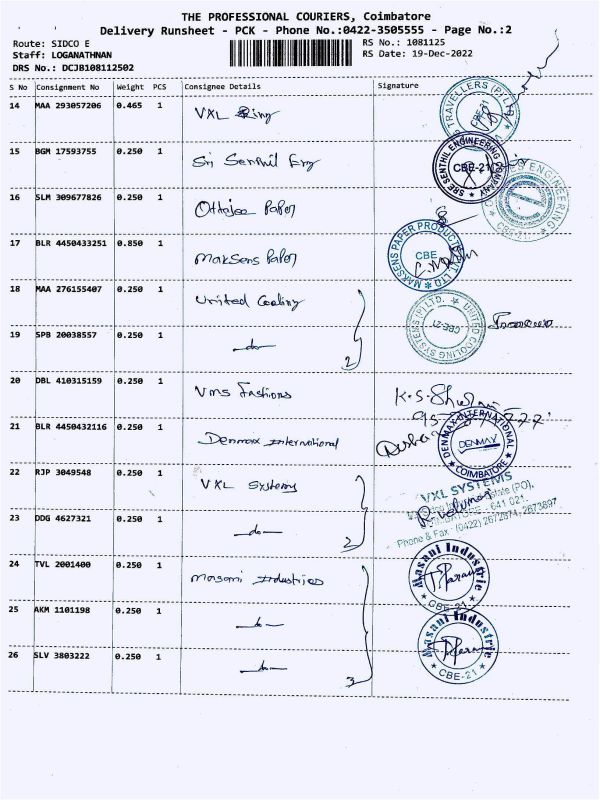 THE PROFESSIONAL COURIERS, Coimbatore
Delivery Runsheet - PCK - Phone No.:0422-3505555 - Page No.:2
Route: SIDCO E RS No.: 1081125
Staff: LOGANATHNAN RS Date: 19-Dec-2022
DRS No.: DCJB108112502
S No Consignment No Weight PCS Consignee Details Signature
14 MAA 293057206 0.465 1 VXL
TRAVELLERS (P) LTD
CBE-21
15 BGM 17593755 0.250 1 Sri Senthil Eng
SRE SENTHIL ENGINEERING COMPANY
CBE-21
16 SLM 309677826 0.250 1 Paper
ENGINEERING
CBE-21
17 BLR 4450433251 0.850 1 Maksens Paper
MAKSENS PAPER PRODUCTS PVT. LTD
CBE
18 MAA 276155407 0.250 1 United Cooling
UNITED COOLING SYSTEMS (P) LTD.
CBE-21
19 SPB 20038557 0.250 1 -do- 2
20 DBL 410315159 0.250 1 Vms Fashions K.S.
21 BLR 4450432116 0.250 1 Denmax International
DENMAX INTERNATIONAL
DENMAX
COIMBATORE
22 RJP 3049548 0.250 1 VXL Systems
VXL SYSTEMS
Estate (PO),
641 021.
Phone & Fax - (0422) 2672874, 2673897
23 DDG 4627321 0.250 1 -do- 2
24 TVL 2001400 0.250 1 Masani Industries
Masani Industrie
CBE-21
25 AKM 1101198 0.250 1 -do-
Masani Industrie
CBE-21
26 SLV 3803222 0.250 1 -do- 3